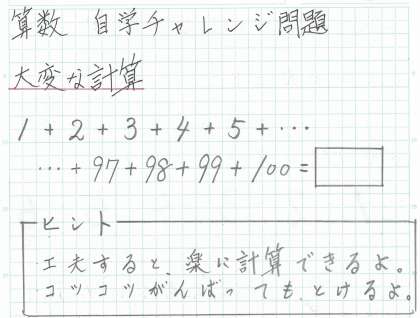 算数 自学チャレンジ問題
大変な計算
1 + 2 + 3 + 4 + 5 + ···
··· + 97 + 98 + 99 + 100 =
ヒント
・工夫すると、楽に計算できるよ。
・コツコツがんばっても、とけるよ。